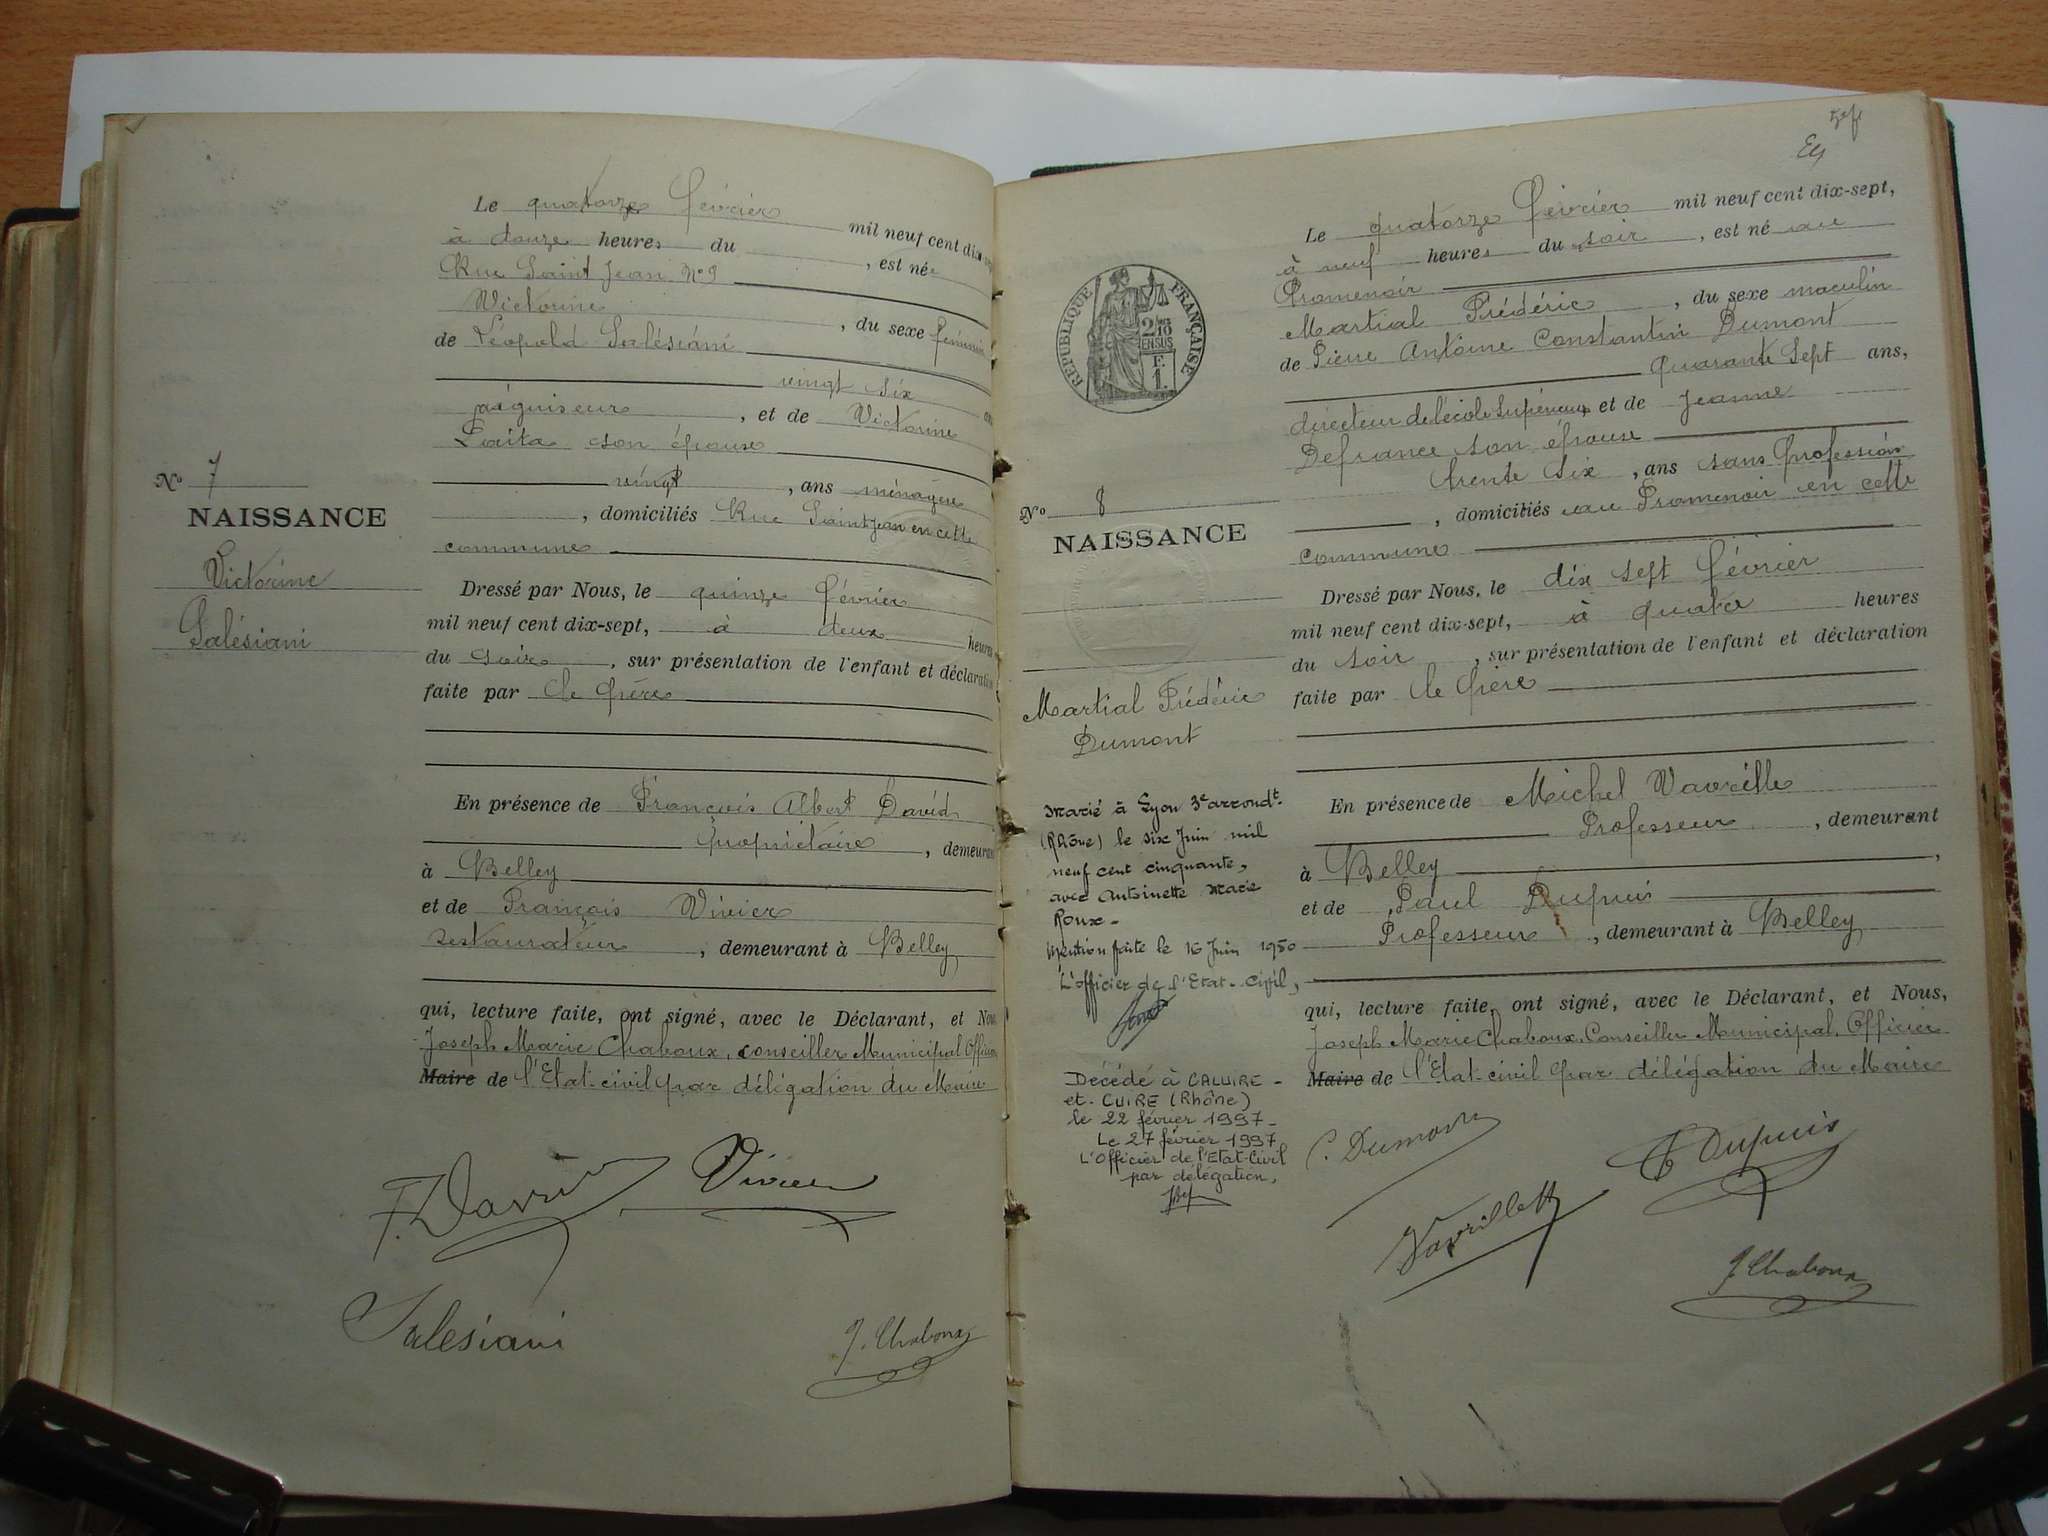 Le quatorze février mil neuf cent dix-sept
à douze heures du , est née
Rue Saint Jean N° 9
Victorine , du sexe féminin
de Léopold Salésiani
vingt six
aiguiseur , et de Victorine
Laita son épouse
vingt , ans ménagère
, domiciliés Rue Saint Jean en cette
commune
N° 7
NAISSANCE
Victorine
Salésiani
Dressé par Nous, le quinze février
mil neuf cent dix-sept, à deux heures
du soir , sur présentation de l'enfant et déclaration
faite par le père
En présence de François Albert David
propriétaire , demeurant
à Belley
et de François Vivier
restaurateur , demeurant à Belley
qui, lecture faite, ont signé, avec le Déclarant, et Nous
Joseph Marie Chaboux, conseiller Municipal Officier
Maire de l'Etat-civil par délégation du Maire
F. David
Vivier
Salesiani
J. Chaboux
Le quatorze février mil neuf cent dix-sept,
à neuf heures du soir , est né au
Promenoir
Martial Frédéric , du sexe masculin
de Pierre Antoine Constantin Dumont
quarante sept ans,
directeur de l'école Supérieure et de Jeanne
Defrance son épouse
trente six , ans sans profession
, domiciliés au Promenoir en cette
commune
RÉPUBLIQUE FRANÇAISE
2/10
EN SUS
F.
1.
N° 8
NAISSANCE
Martial Frédéric
Dumont
Dressé par Nous, le dix sept février
mil neuf cent dix-sept, à quatre heures
du soir , sur présentation de l'enfant et déclaration
faite par le père
En présence de Michel Vavrille
Professeur , demeurant
à Belley ,
et de Paul Dupuis
Professeur , demeurant à Belley
qui, lecture faite, ont signé, avec le Déclarant, et Nous,
Joseph Marie Chaboux, Conseiller Municipal, Officier
Maire de l'Etat-civil par délégation du Maire
Marié à Lyon 3e arrondt.
(Rhône) le six Juin mil
neuf cent cinquante,
avec Antoinette Marie
Roux -
Mention faite le 16 Juin 1950
L'officier de l'Etat-Civil,
Décédé à CALUIRE -
et - CUIRE (Rhône)
le 22 février 1997 -
Le 27 février 1997
L'Officier de l'Etat-Civil
par délégation,
C. Dumont
Dupuis
Vavrille
J. Chaboux